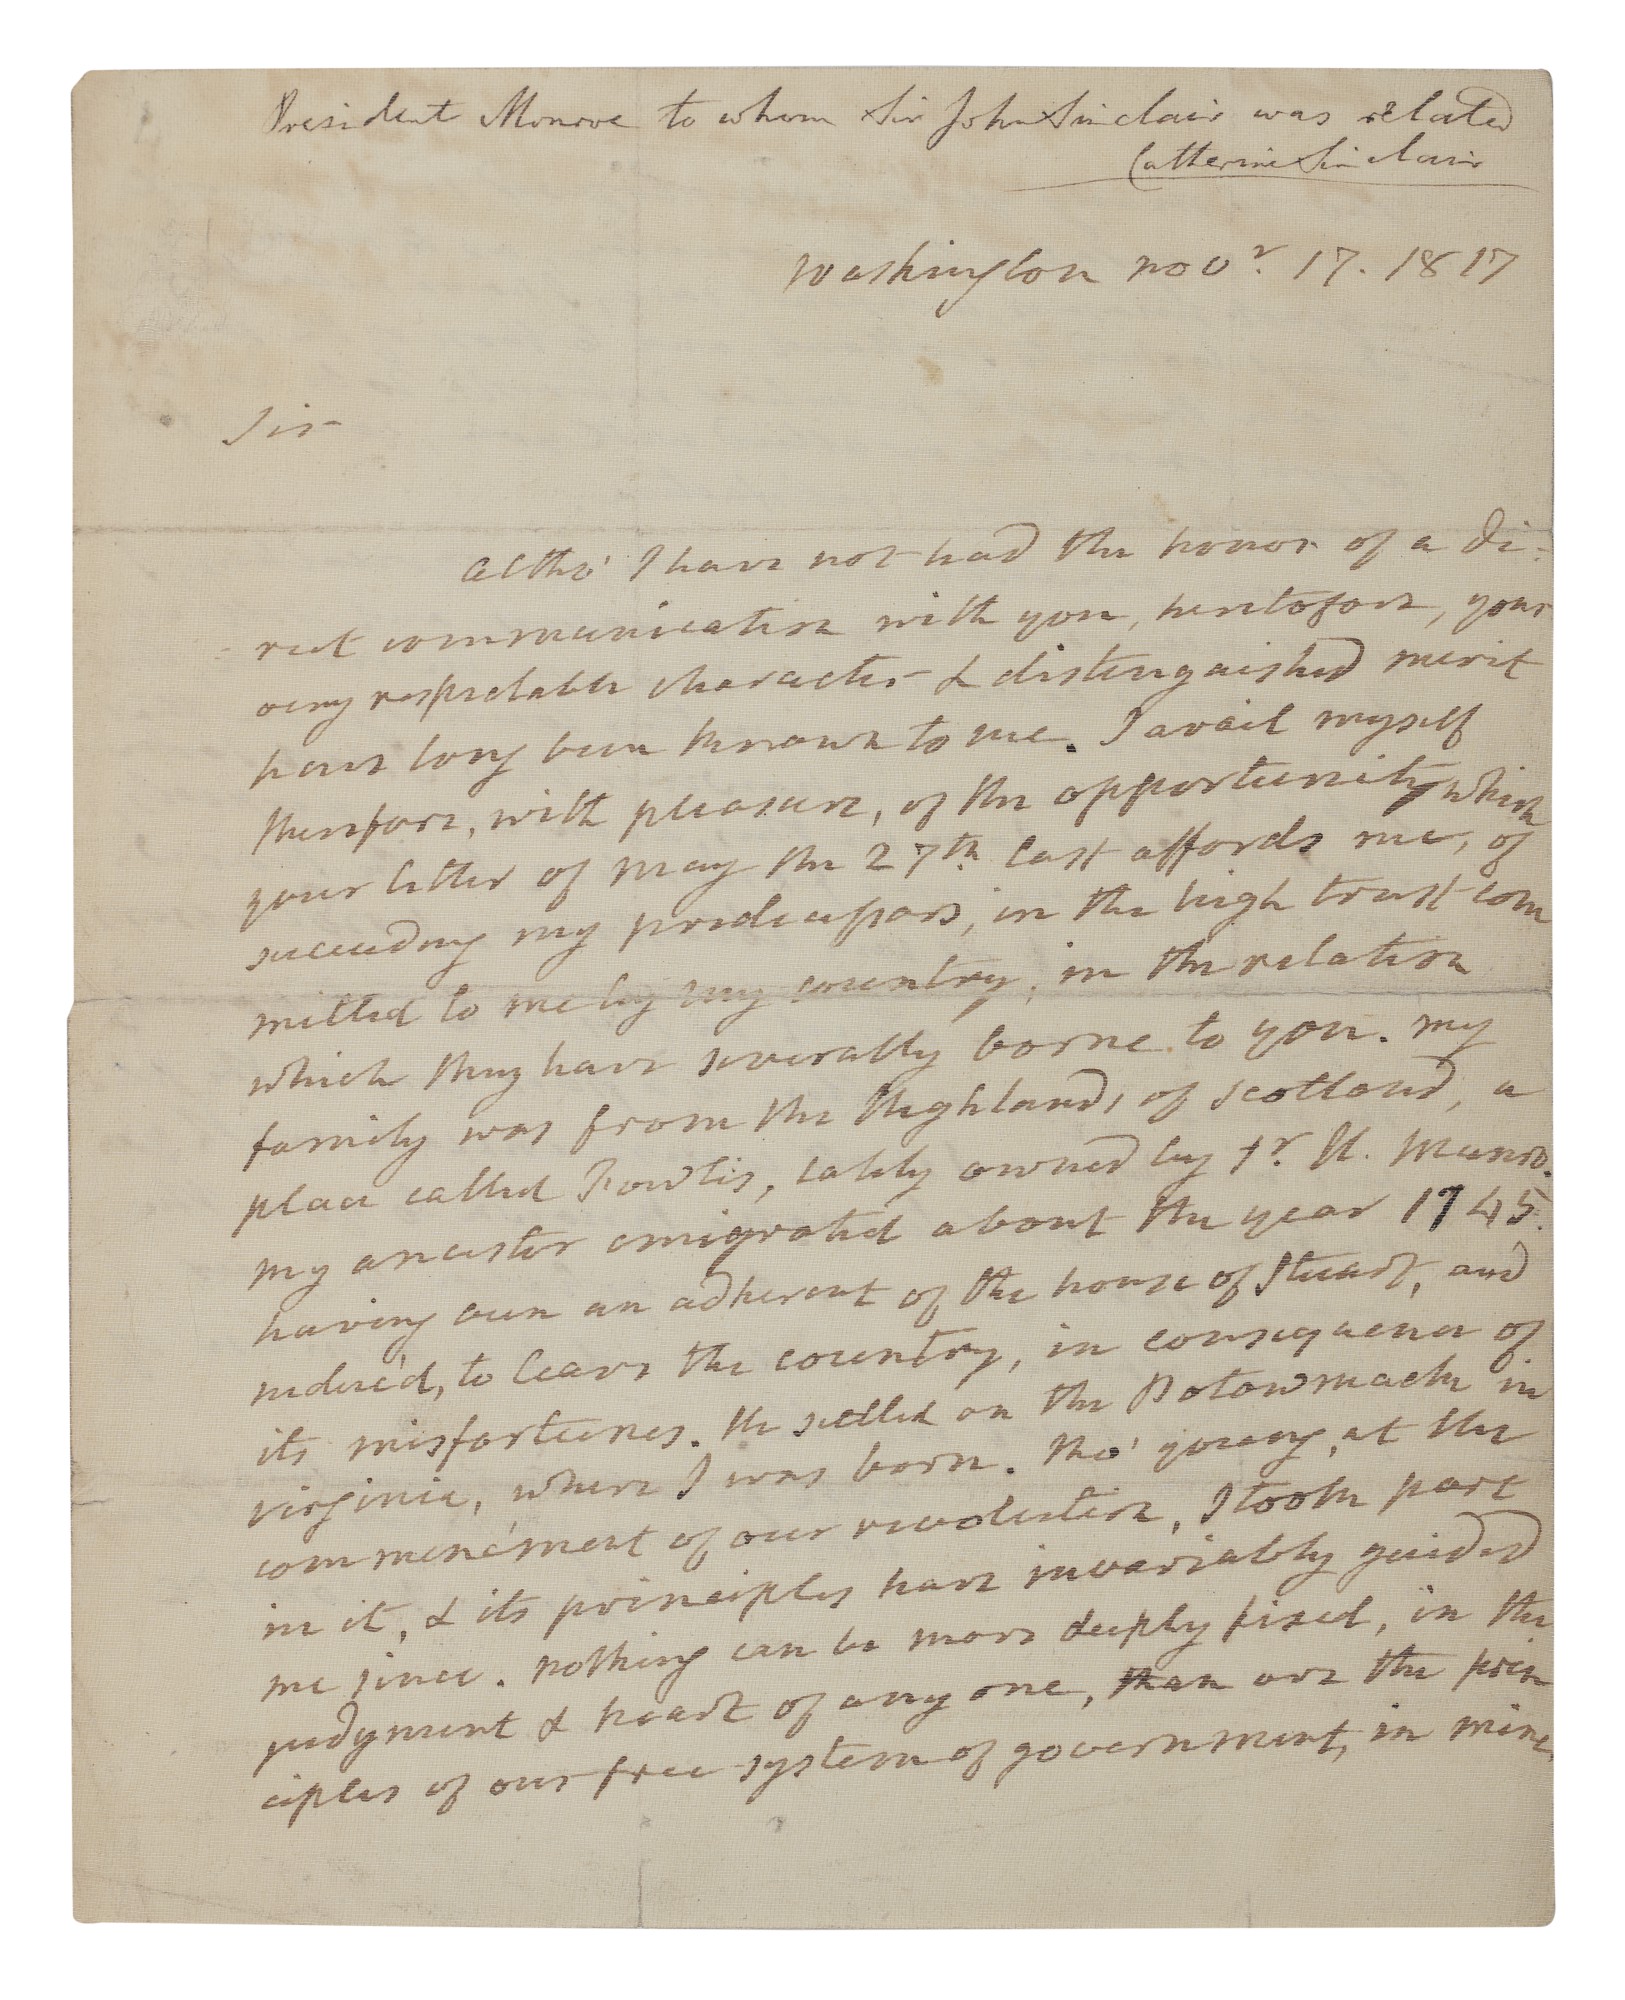 President Monroe to whom Sir John Sinclair was related
Catherine Sinclair
Washington Novr. 17. 1817
Sir
Altho' I have not had the honor of a di-
rect communication with you, heretofore, your
very respectable character & distinguished merit
have long been known to me. I avail myself
therefore, with pleasure, of the opportunity which
your letter of May the 27th. last affords me, of
succeeding my predecessors, in the high trust com
mitted to me by my country, in the relation
which they have severally borne to you. My
family was from the Highlands of Scotland, a
place called Fowlis, lately owned by Sr. H. Munro.
My ancestor emigrated about the year 1745.
having been an adherent of the house of Stuart, and
induc'd, to leave the country, in consequence of
its misfortunes. He settled on the Potowmack in
Virginia, where I was born. Tho' young, at the
commenc'ment of our revolution, I took part
in it, & its principles have invariably guided
me since. Nothing can be more deeply fixed, in the
judgment & heart of any one, than are the prin
ciples of our free system of government, in mine,